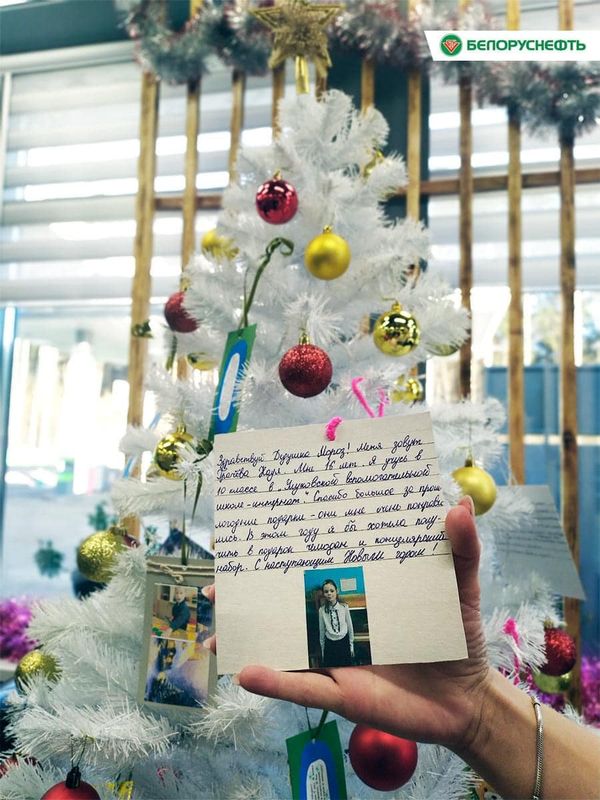 БЕЛОРУСНЕФТЬ
Здравствуй Дедушка Мороз! Меня зовут
Надя. Мне 16 лет. Я учусь в
10 классе в
школе-интернат". Спасибо большое за прош-
логодние подарки - они мне очень понрави-
лись. В этом году я бы хотела полу-
чить в подарок чемодан и канцелярский
набор. С наступающим Новым годом!